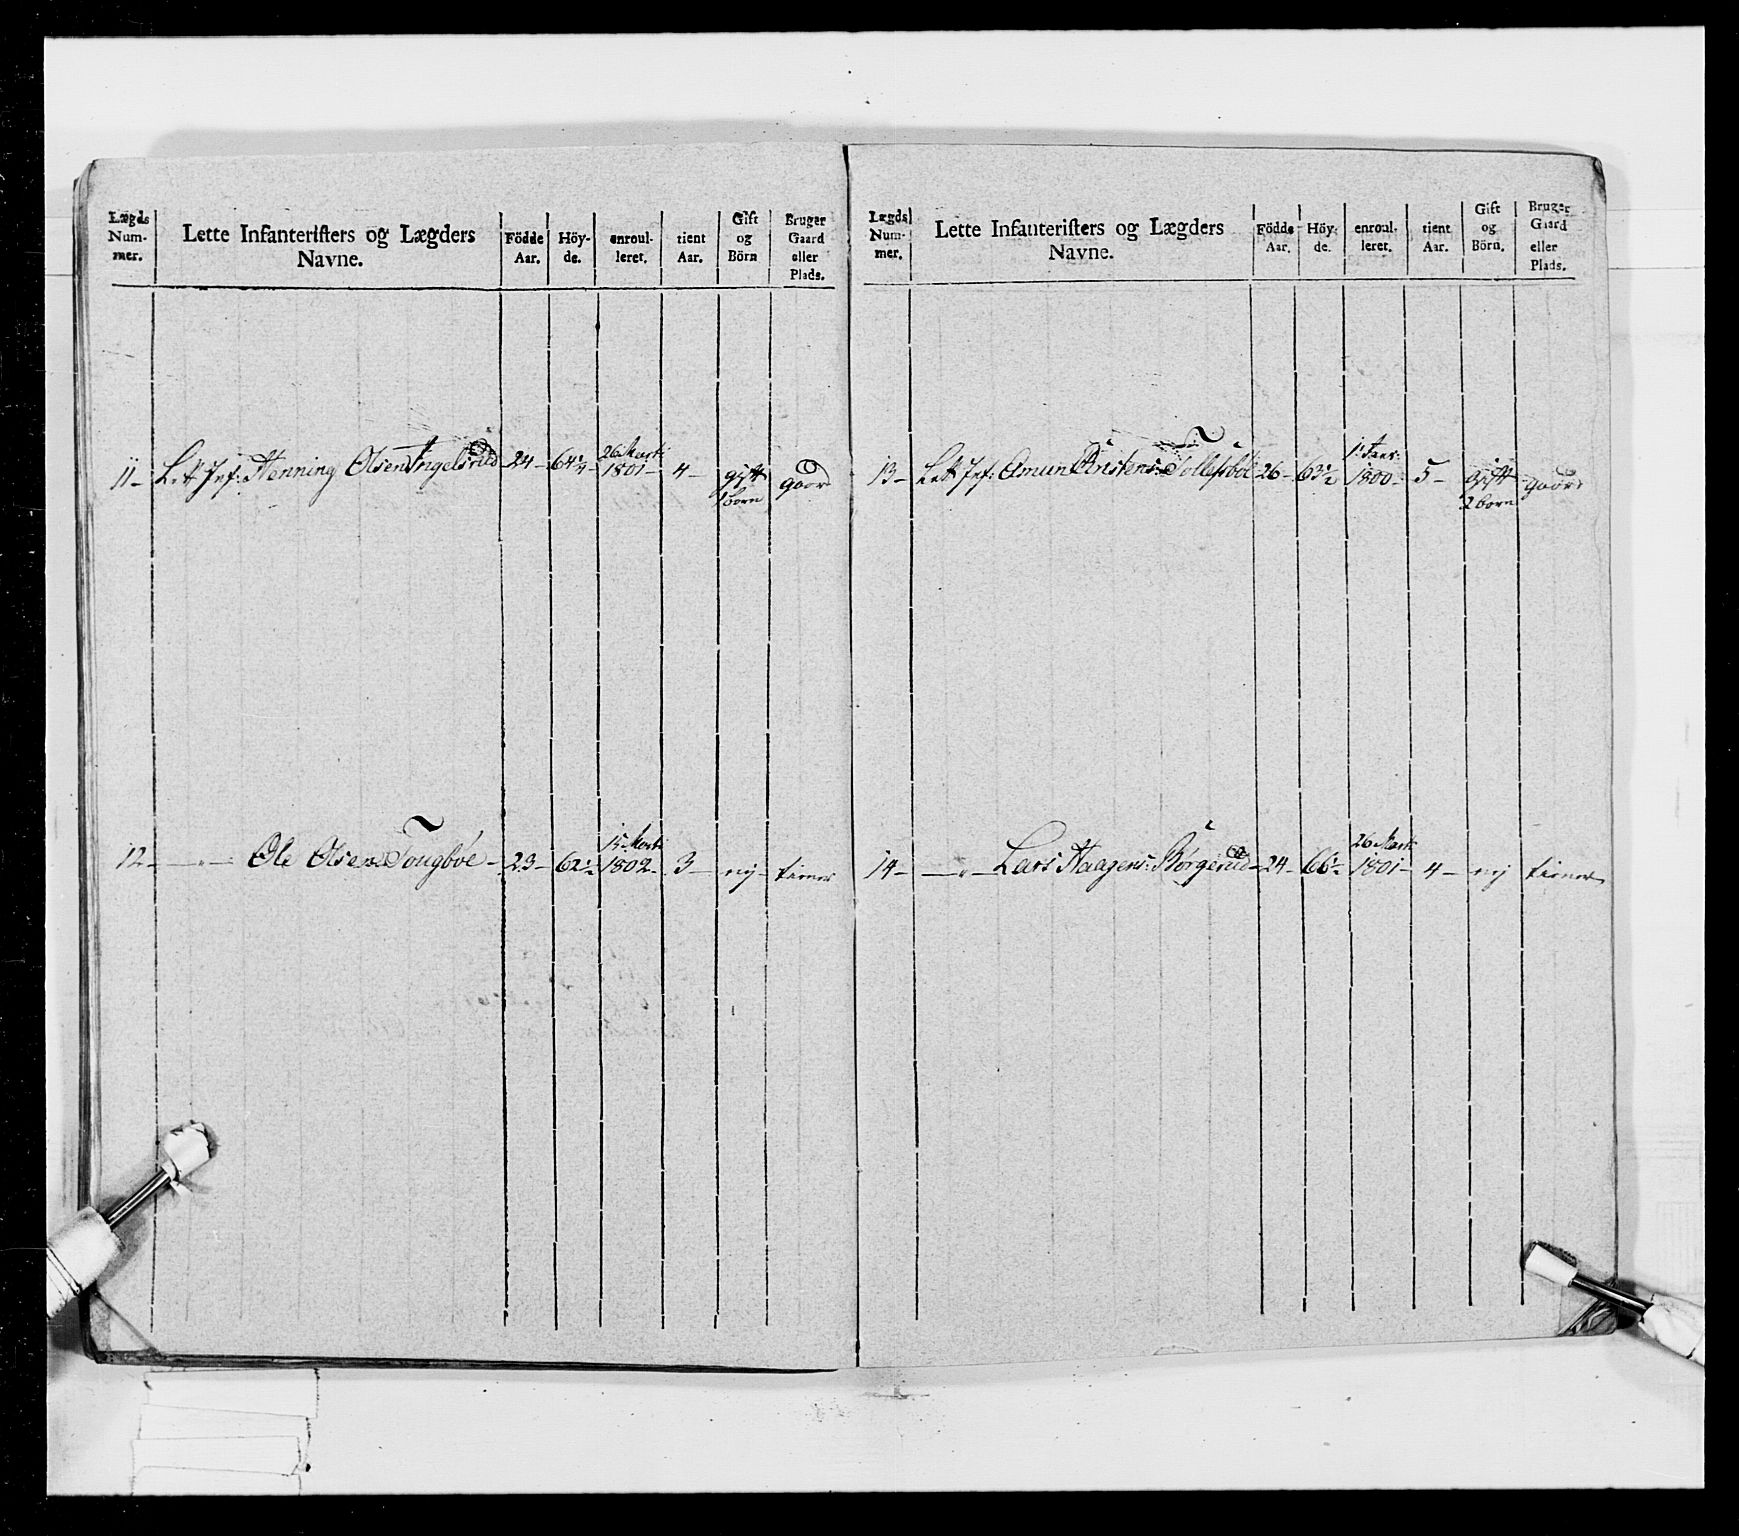 Lægds Num- mer. | Lette Infanteristers og Lægders Navne. | Födde Aar. | Höy- de. | enroul- leret. | tient Aar. | Gift og Börn | Bruger Gaard eller Plads.
11 – Lett Inf: Henning Olsen Ingelsrud – 24 – 64 1/4 – 26 Marti 1801 – 4 – gift 1 born gaard
12 – – " – Ole Olsen Tougböe – 23 – 62 1/2 15 Marti 1802 – 3 – nij – tiener
Lægds Num- mer. | Lette Infanteristers og Lægders Navne. | Födde Aar. | Höy- de. | enroul- leret. | tient Aar. | Gift og Börn. | Bruger Gaard eller Plads.
13 – Lett Inf: Amun Cristens: Tollefsböl 26 – 63 1/2 1 Janr: 1800 – 5 – gift 2 born gaard
14 – – " – Lars Haagens: Börgerud – 24 – 66 1/2 26 Marti 1801 – 4 – nij tiener